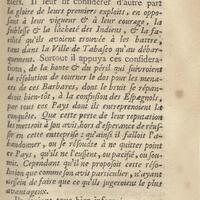 liers. Il leur fit considerer d'autre part
la gloire de leurs premiers exploits, en oppo-
sant à leur vigueur & à leur courage, la
foiblesse & la lâcheté des Indiens, & la fa-
cilité qu'ils avoient trouvée à les battre,
tant dans la Ville de Tabasco qu'au débar-
quement. Surtout il appuya ces considéra-
tions, de la honte & du péril qui suivroient
la résolution de tourner le dos pour les mena-
ces de ces Barbares, dont le bruit se répan-
droit bien-tôt, à la confusion des Espagnols,
par tous ces Pays dont ils entreprenoient la
conquête. Que cette perte de leur reputation
les mettoit à son avis, hors d'esperance de réüs-
sir en cette entreprise; qu'ainsi il falloit l'a-
bandonner, ou se résoudre à ne quitter point
ce Pays, qu'ils ne l'eussent, ou pacifié, ou soû-
mis. Cependant qu'il ne proposoit cette réso-
lution que comme son avis particulier, n'ayant
dessein de faire que ce qu'ils jugeroient le plus
avantageux.